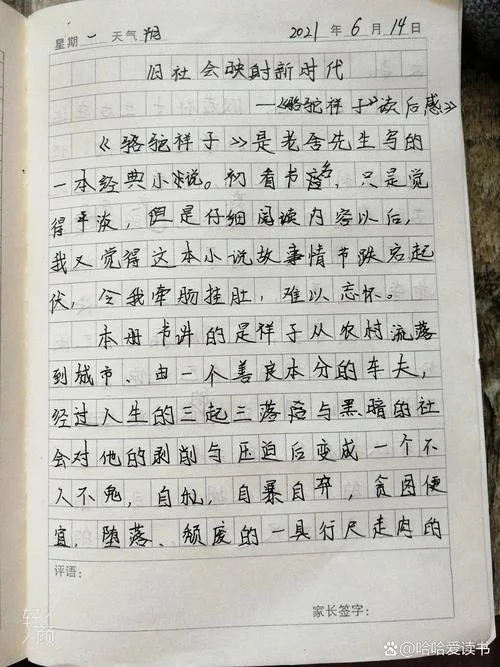 星期一 天气 阴 2021年6月14日
旧社会映射新时代
——《骆驼祥子》读后感》
《骆驼祥子》是老舍先生写的
一本经典小说。初看书名，只是觉
得平淡，但是仔细阅读内容以后，
我又觉得这本小说故事情节跌宕起
伏，令我牵肠挂肚，难以忘怀。
本册书讲的是祥子从农村流落
到城市、由一个善良本分的车夫，
经过人生的三起三落后与黑暗的社
会对他的剥削与压迫后变成一个不
人不鬼，自私，自暴自弃，贪图便
宜，堕落、颓废的一具行尸走肉的
评语：
家长签字：
轻颜
哈哈爱读书